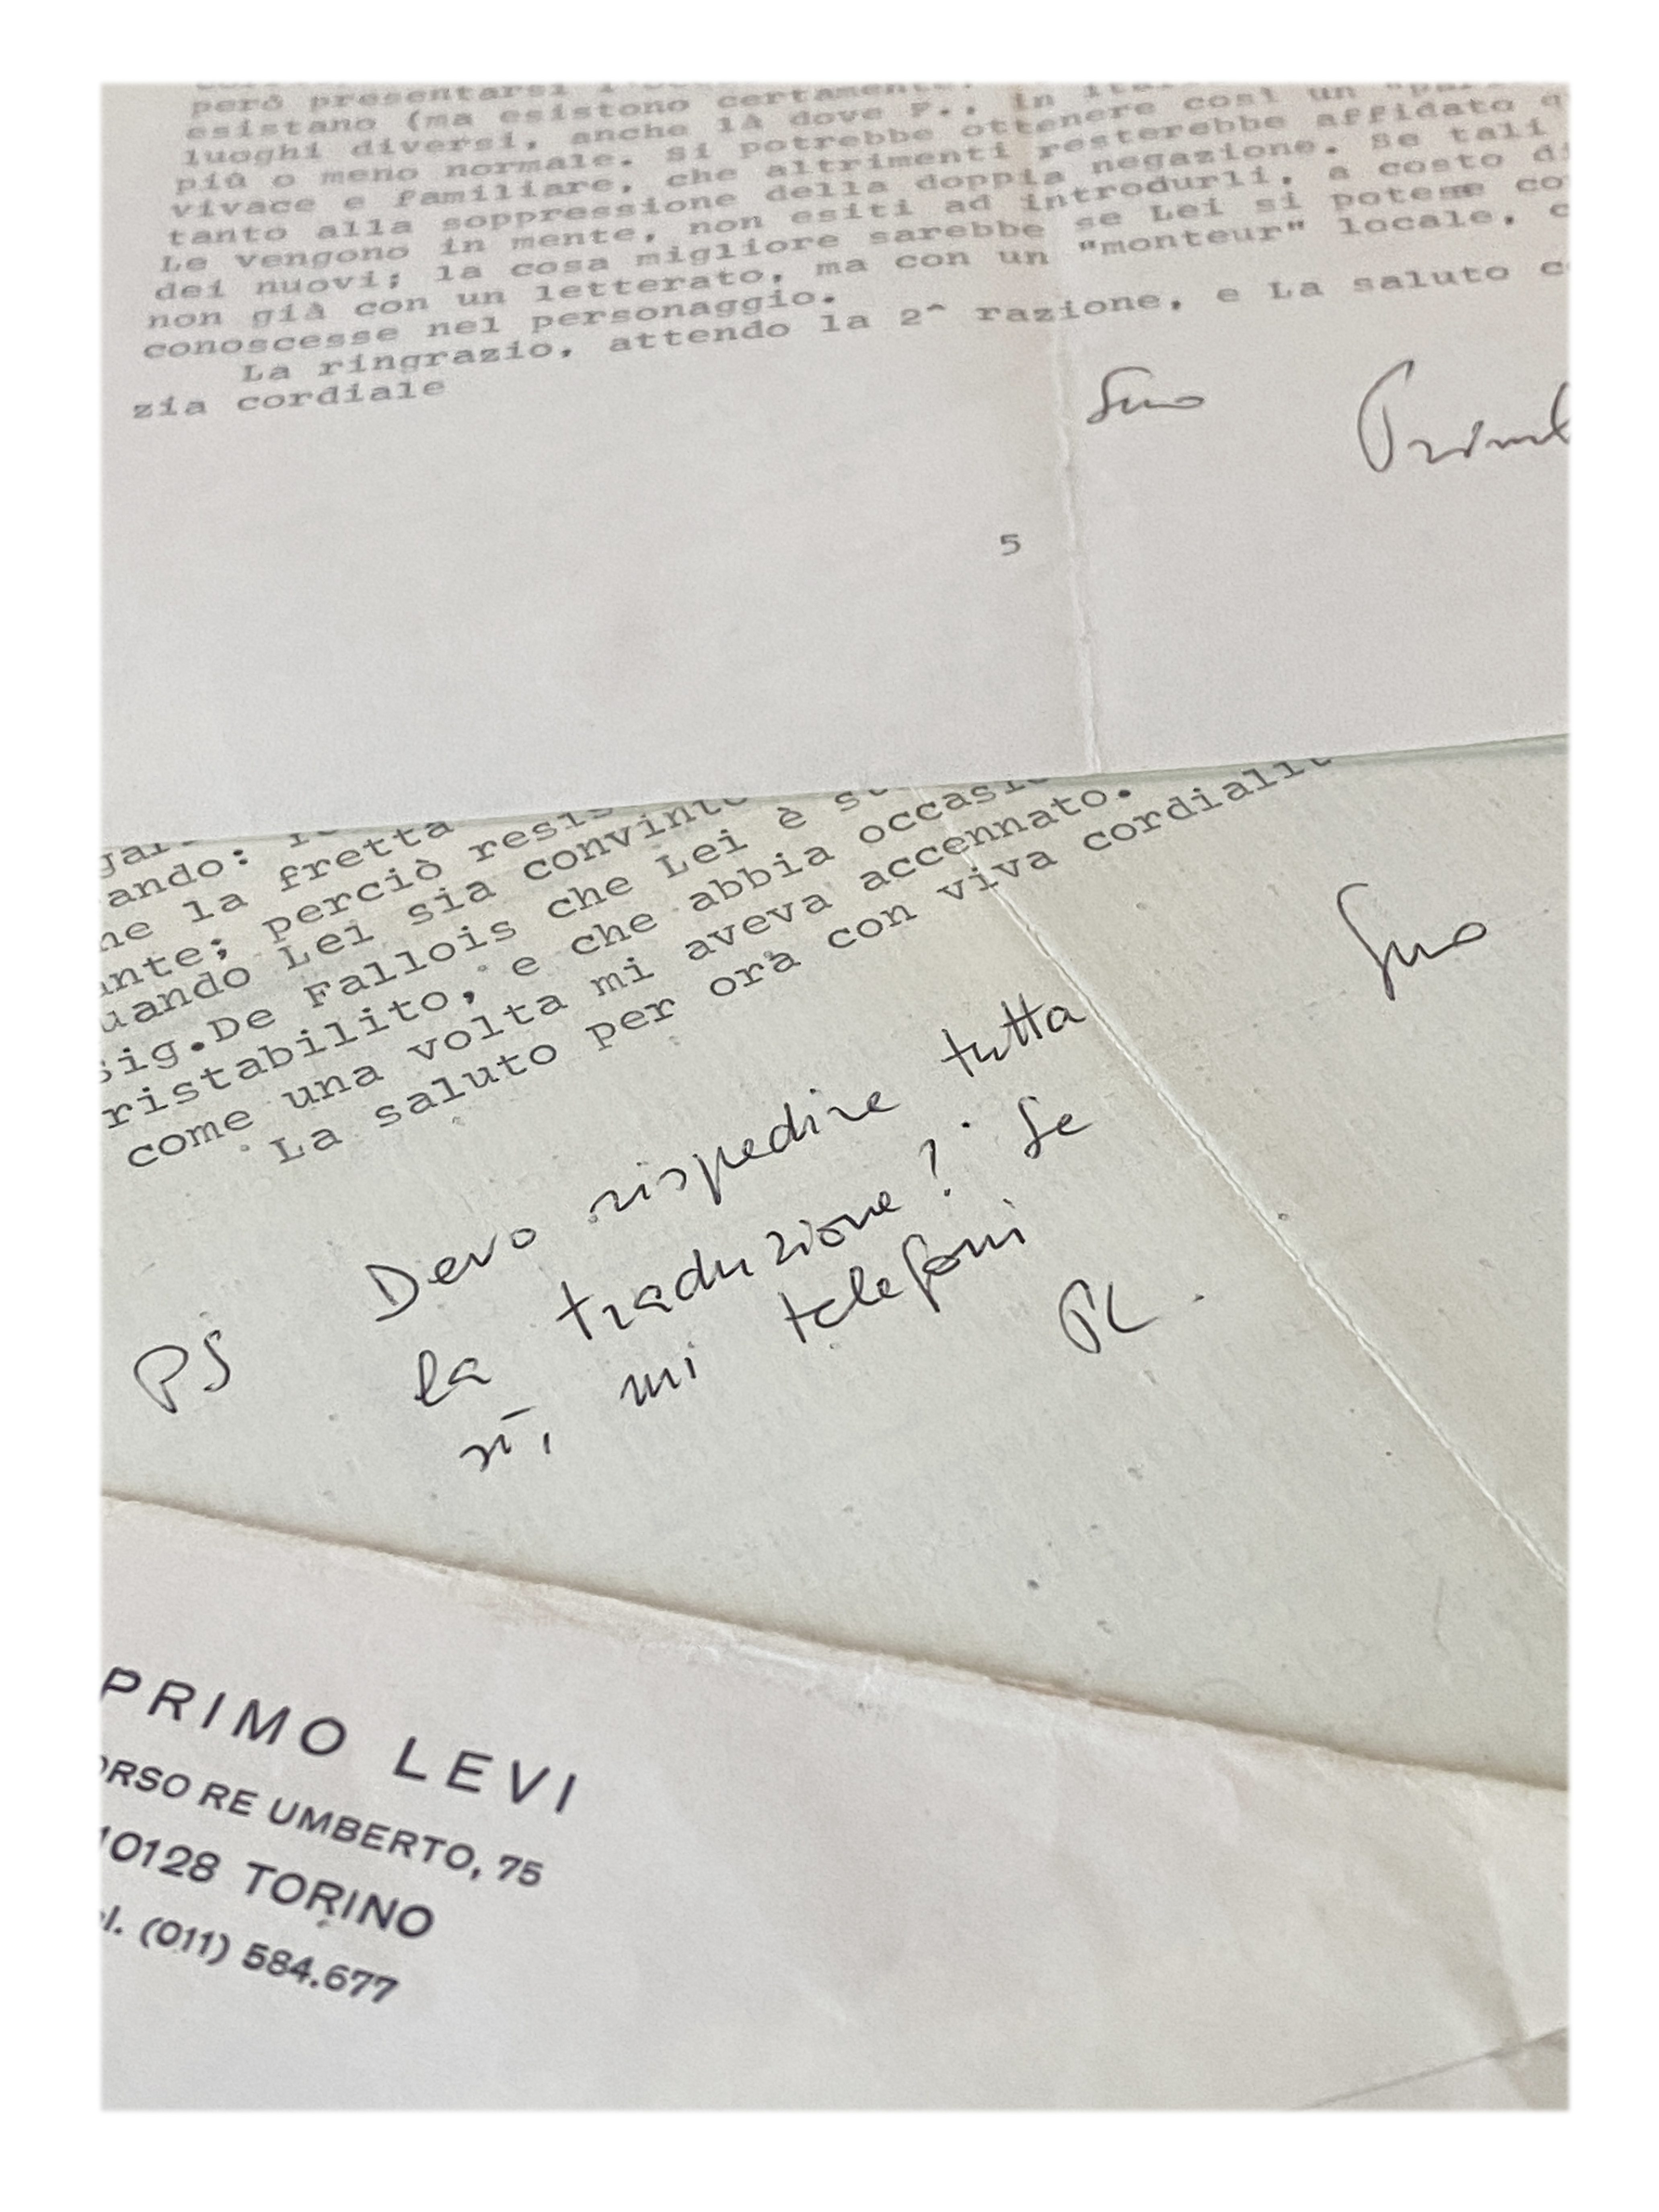 però presentarsi
esistano (ma esistono certamente
luoghi diversi, anche là dove F., in
più o meno normale. Si potrebbe ottenere così un
vivace e familiare, che altrimenti resterebbe affidato
tanto alla soppressione della doppia negazione. Se tali
Le vengono in mente, non esiti ad introdurli, a costo
dei nuovi; la cosa migliore sarebbe se Lei si potesse
non già con un letterato, ma con un "monteur" locale,
conoscesse nel personaggio.
La ringrazio, attendo la 2^ razione, e La saluto
zia cordiale
Suo Primo
5
ando:
ne la fretta
ante; perciò
uando Lei sia convint
sig.De Fallois che Lei è
ristabilito, e che abbia occasi
come una volta mi aveva accennato.
La saluto per ora con viva cordialit
Suo
PS Devo rispedire tutta
la traduzione? Se
sì, mi telefoni
PL.
PRIMO LEVI
ORSO RE UMBERTO, 75
10128 TORINO
el. (011) 584.677